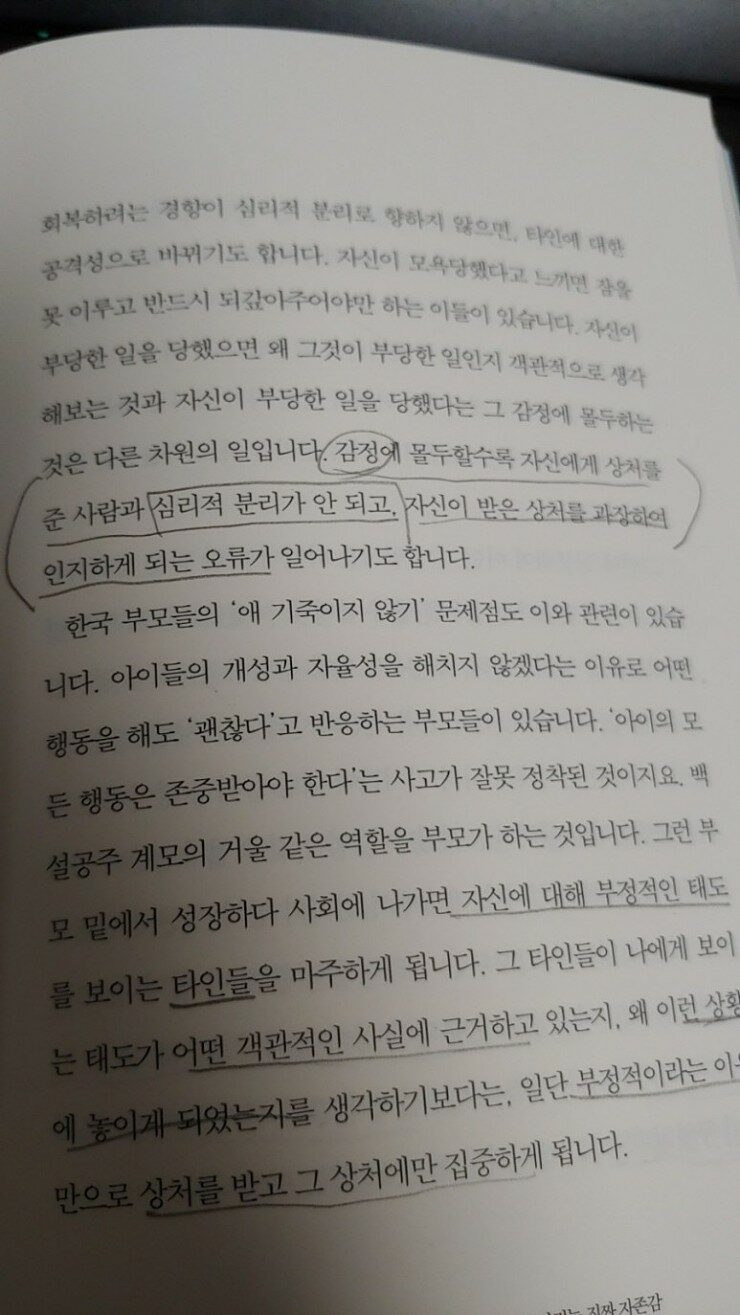 회복하려는 경향이 심리적 분리로 향하지 않으면, 타인에 대한
공격성으로 바뀌기도 합니다. 자신이 모욕당했다고 느끼면 잠을
못 이루고 반드시 되갚아주어야만 하는 이들이 있습니다. 자신이
부당한 일을 당했으면 왜 그것이 부당한 일인지 객관적으로 생각
해보는 것과 자신이 부당한 일을 당했다는 그 감정에 몰두하는
것은 다른 차원의 일입니다. 감정에 몰두할수록 자신에게 상처를
준 사람과 심리적 분리가 안 되고, 자신이 받은 상처를 과장하여
인지하게 되는 오류가 일어나기도 합니다.
한국 부모들의 ‘애 기죽이지 않기’ 문제점도 이와 관련이 있습
니다. 아이들의 개성과 자율성을 해치지 않겠다는 이유로 어떤
행동을 해도 ‘괜찮다’고 반응하는 부모들이 있습니다. ‘아이의 모
든 행동은 존중받아야 한다’는 사고가 잘못 정착된 것이지요. 백
설공주 계모의 거울 같은 역할을 부모가 하는 것입니다. 그런 부
모 밑에서 성장하다 사회에 나가면 자신에 대해 부정적인 태도
를 보이는 타인들을 마주하게 됩니다. 그 타인들이 나에게 보이
는 태도가 어떤 객관적인 사실에 근거하고 있는지, 왜 이런 상황
에 놓이게 되었는지를 생각하기보다는, 일단 부정적이라는 이유
만으로 상처를 받고 그 상처에만 집중하게 됩니다.
진짜 자존감